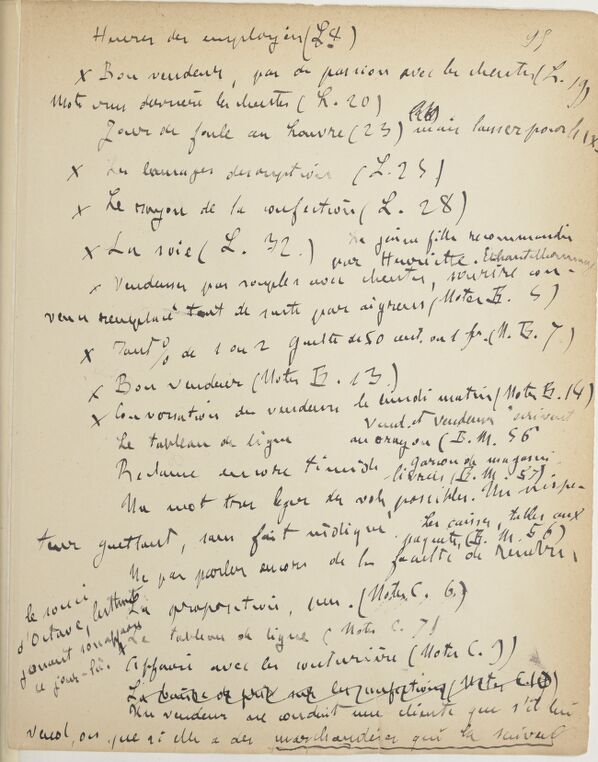 Heures des employés (L. 4) 95
x Bon vendeur, pas de passion avec les clientes (L. 19)
Mots crus derrière les clientes (L. 20)
Jour de foule au Louvre (23) mais laisser pour le IX
x Les lainages description (L. 25)
x Le rayon de la confection (L. 28)
x La soie (L. 32.) Une jeune fille recommandée
par Henriette. Echantillonneur
x Vendeuses pas souples avec clientes, sourire con-
venu remplacé tout de suite par aigreurs (Notes B. 5)
x Tant % de 1 ou 2 Guelte de 50 cent. ou 1 fr. (N. B. 7.)
x Bon vendeur (Notes B. 13.)
x Conversation des vendeurs le lundi matin (Notes B. 14)
Le tableau de ligne
Vend. et vendeuses écrivent
au crayon (B. M. 56
Réclame encore timide
garçon de magasin
livrées (B. M. 57)
Un mot très léger des vols possibles. Un inspec-
teur guettant, sans fait indiqué
Les caisses, tables aux
paquets (B. M. 56)
Ne pas parler encore de la faculté de rendre,
La proposition, peu. (Notes C. 6.)
le souci
d'Octave,
jouant son
ce jour-là.
x Le tableau de ligne (Notes C. 7)
Affaire avec les couturières (Notes C. 9)
La baisse de prix sur les confections (Notes C. 10)
Un vendeur ne conduit une cliente que s'il lui
vend, ou que si elle a des marchandises qui la suivent